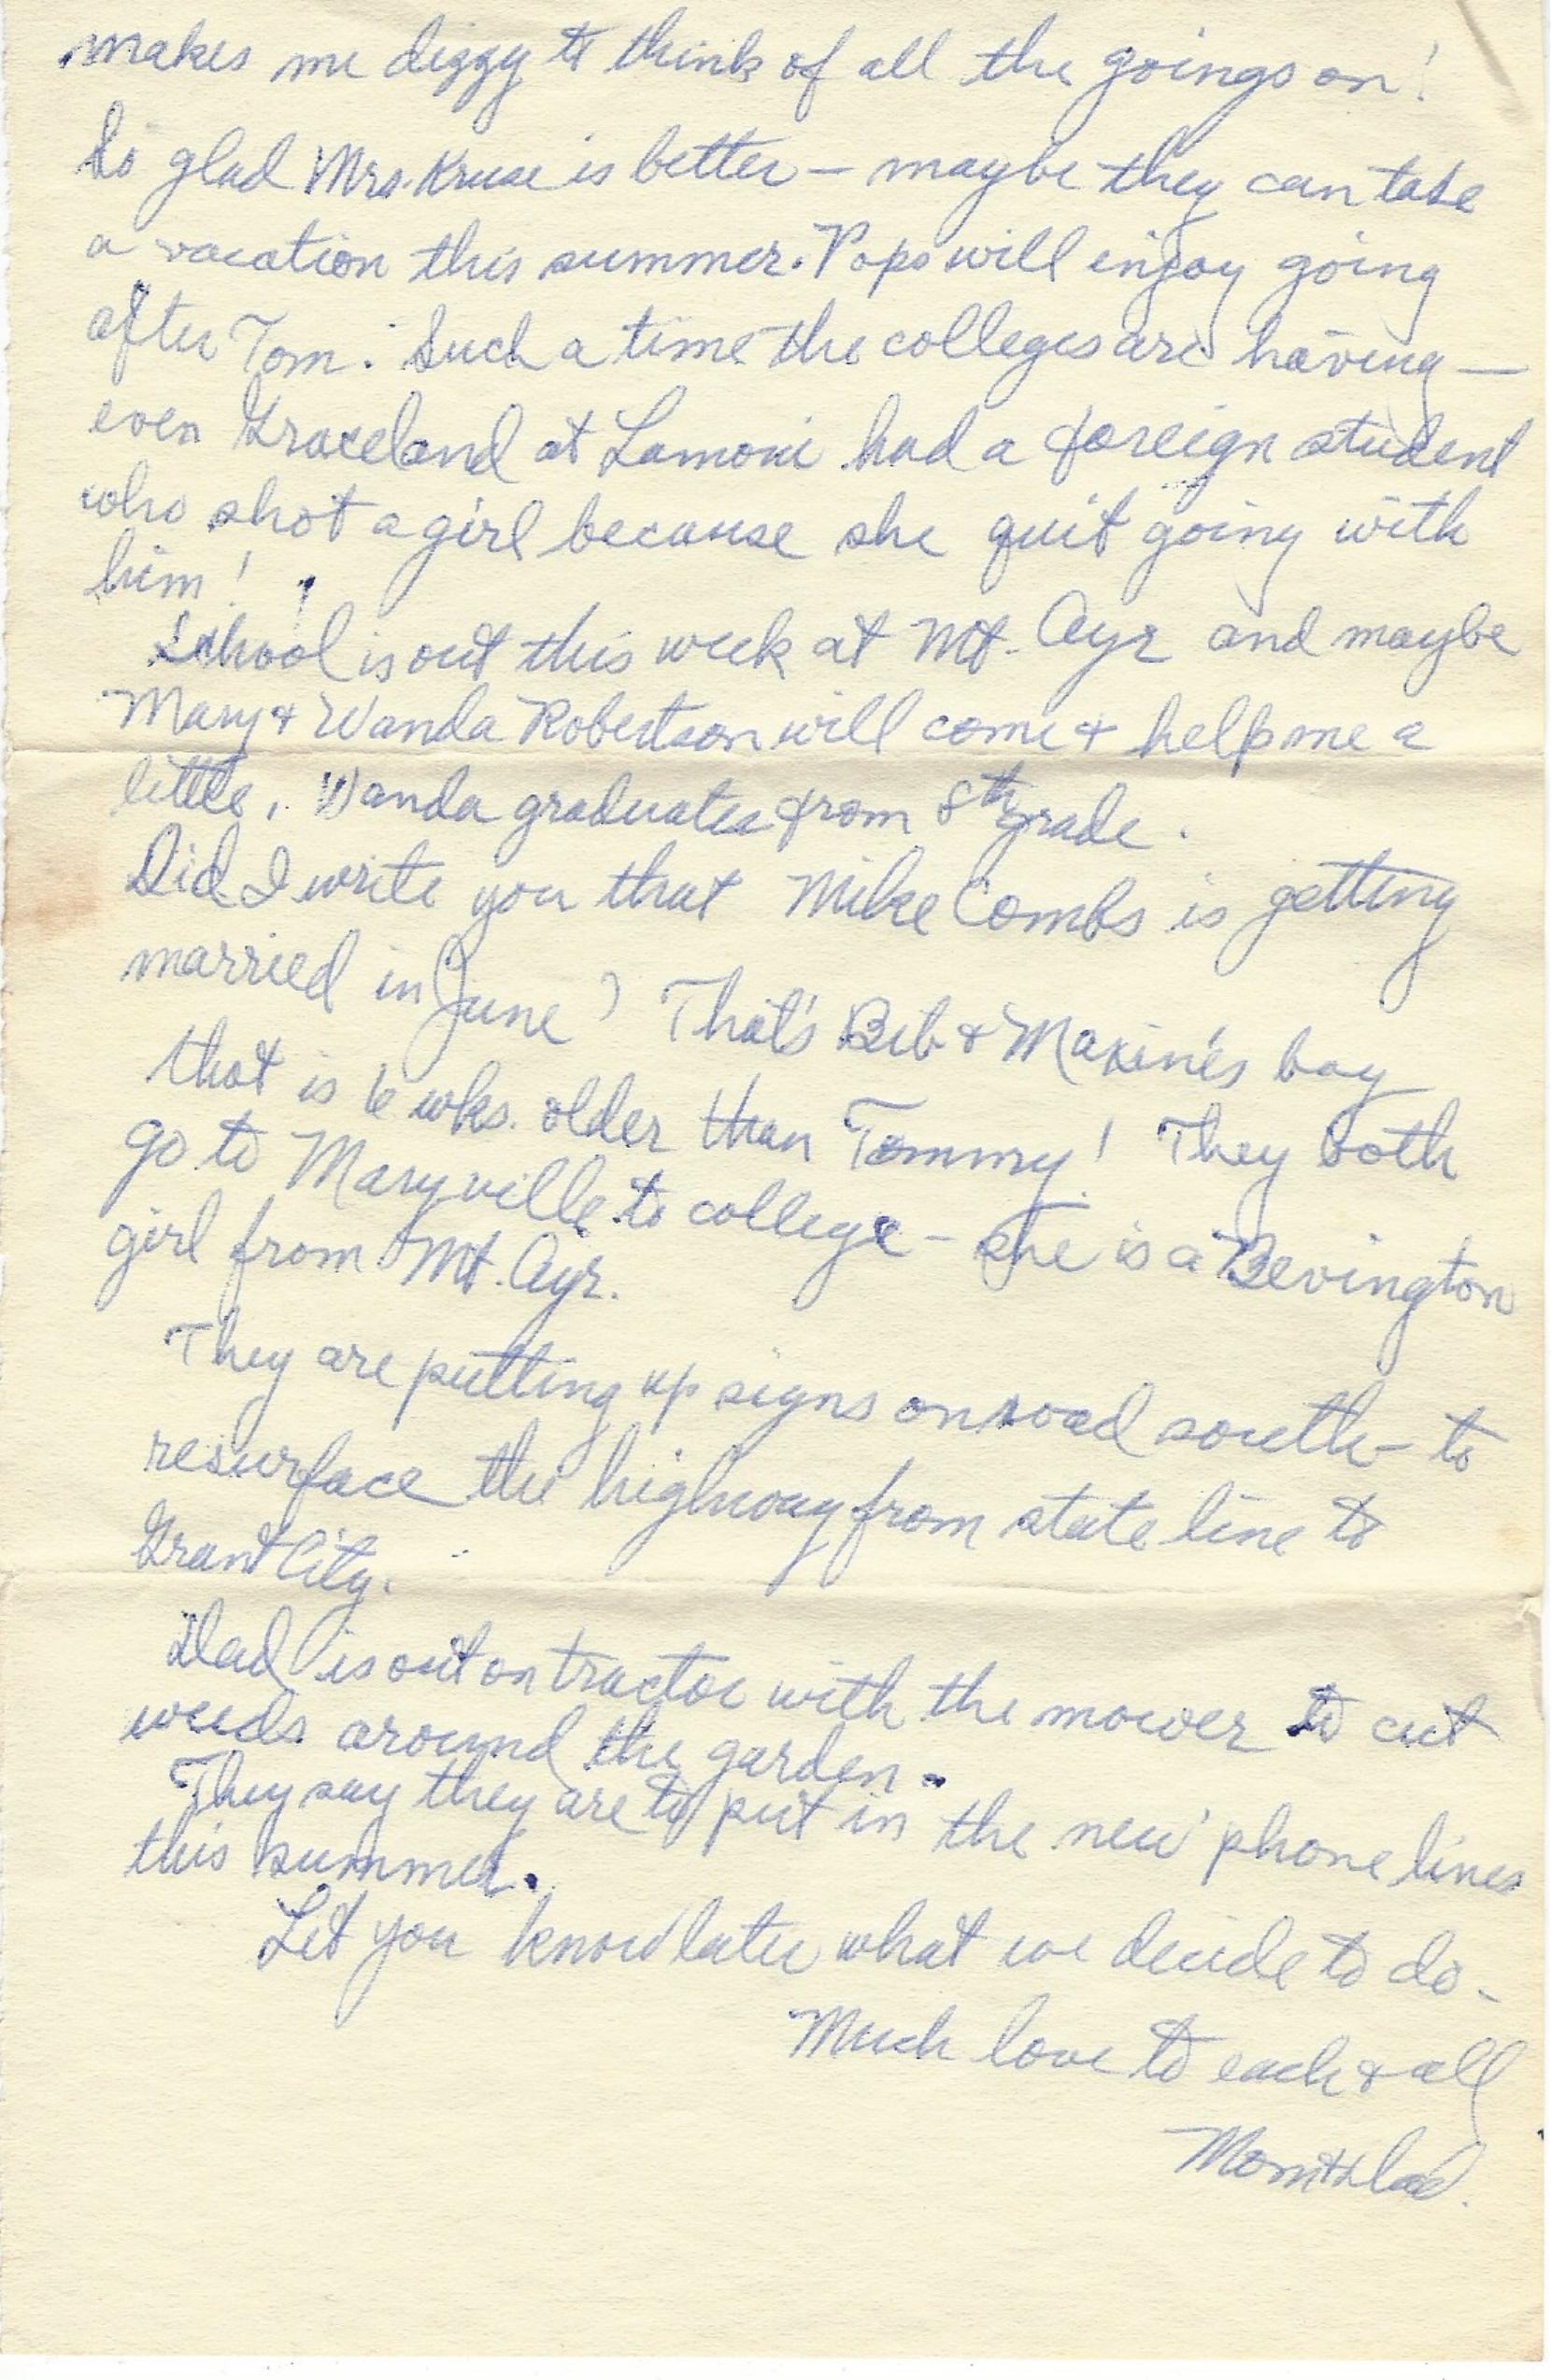 makes me dizzy to think of all the goings on!
So glad Mrs. Kruse is better – maybe they can take
a vacation this summer. Pops will enjoy going
after Tom. Such a time the colleges are having —
even Graceland at Lamoni had a foreign student
who shot a girl because she quit going with
him!
School is out this week at Mt. Ayr and maybe
Mary & Wanda Robertson will come & help me a
little. Wanda graduates from 8th grade.
Did I write you that Mike Combs is getting
married in June? That's Bib & Maxine's boy
that is 6 wks. older than Tommy! They both
go to Maryville to college – she is a Bevington
girl from Mt. Ayr.
They are putting up signs on road south – to
resurface the highway from state line to
Grant City.
Dad is out on tractor with the mower to cut
weeds around the garden.
They say they are to put in the new phone lines
this summer.
Let you know later what we decide to do –
Much love to each & all
Mom & Dad.